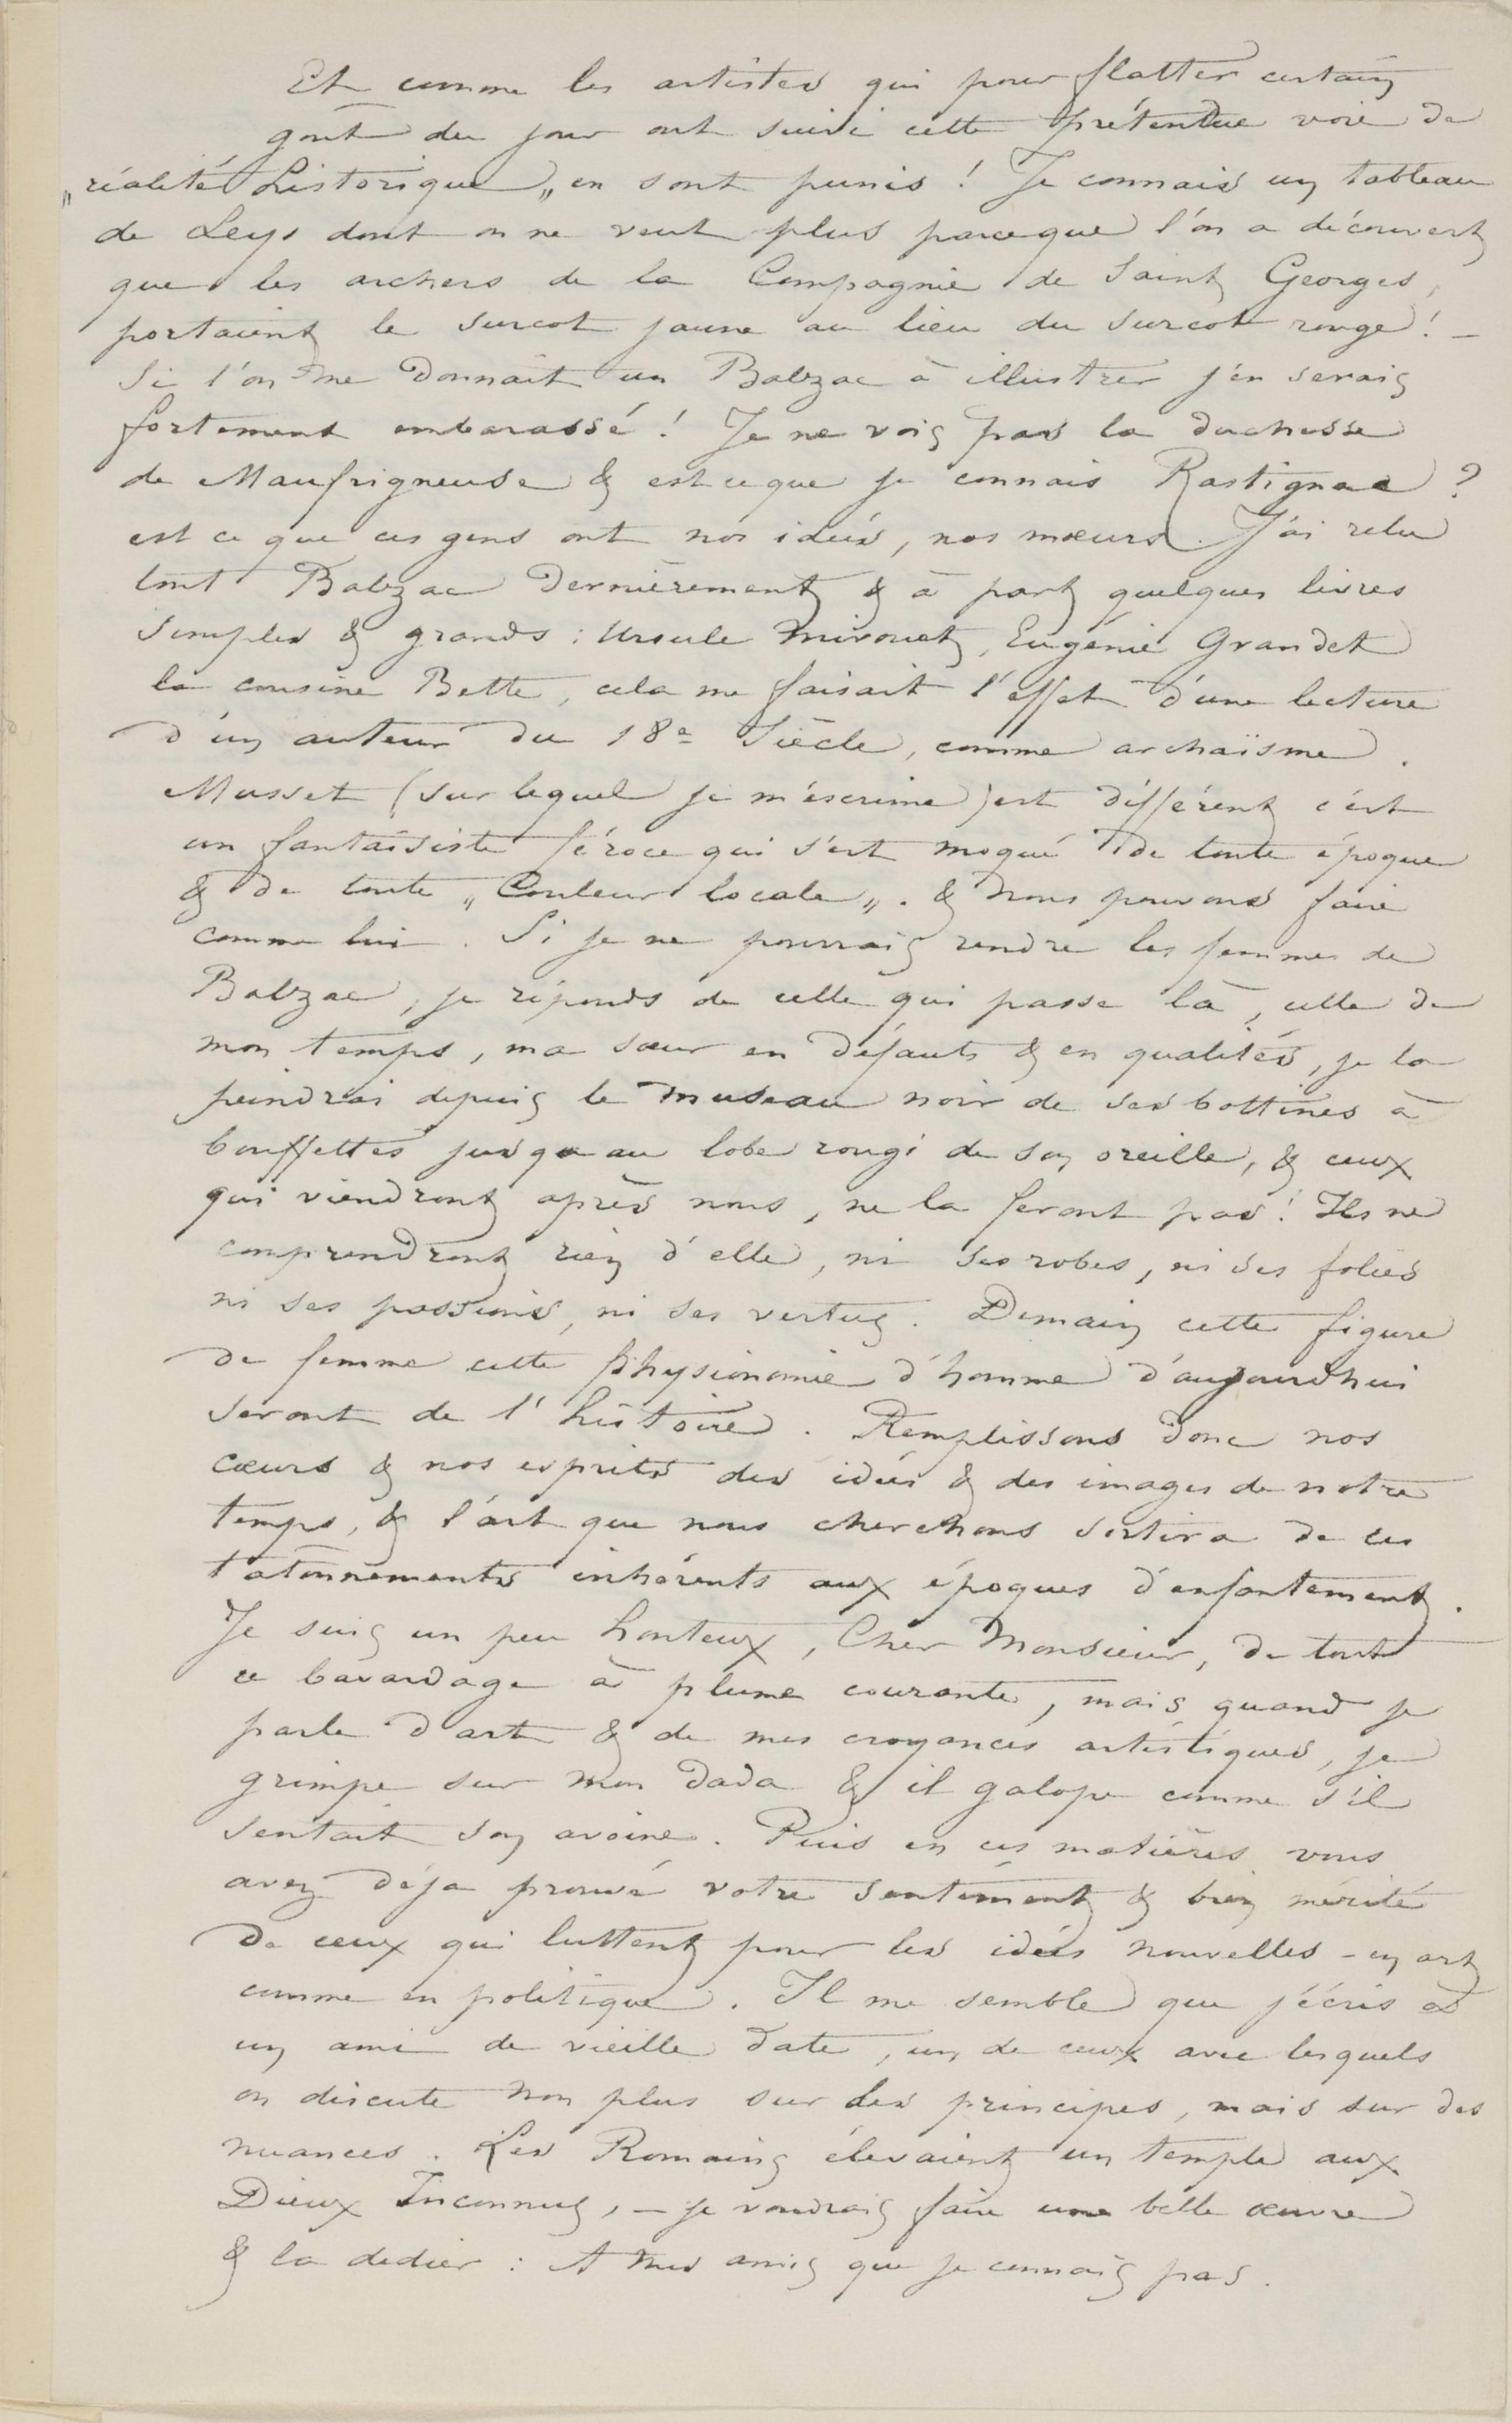 Et comme les artistes qui pour flatter certain
goût du jour ont suivi cette prétendue voie de
„réalité historique„ en sont punis ! Je connais un tableau
de Leys dont on ne veut plus parceque l'on a découvert
que les archers de la Compagnie de Saint Georges,
portaient le surcot jaune au lieu du surcot rouge ! –
Si l'on me donnait un Balzac à illustrer j'en serais
fortement embarassé ! Je ne vois pas la duchesse
de Maufrigneuse & est ce que je connais Rastignac ?
est ce que ces gens ont nos idées, nos mœurs. J'ai relu
tout Balzac dernièrement & à part quelques livres
simples & grands : Ursule Mirouet, Eugénie Grandet
la cousine Bette, cela me faisait l'effet d'une lecture
d'un auteur du 18e Siècle, comme archaïsme.
Musset (sur lequel je m'escrime) est différent c'est
un fantaisiste féroce qui s'est moqué de toute époque
& de toute „Couleur locale„. & nous pouvons faire
comme lui. Si je ne pourrais rendre les femmes de
Balzac, je réponds de celle qui passe là, celle de
mon temps, ma sœur en défauts & en qualités, je la
peindrai depuis le museau noir de ses bottines à
bouffettes jusqu'au lobe rougi de son oreille, & ceux
qui viendront après nous, ne la feront pas ! Ils ne
comprendront rien d'elle, ni ses robes, ni ses folies
ni ses passions, ni ses vertus. Demain cette figure
de femme cette physionomie d'homme d'aujourd'hui
seront de l'histoire. Remplissons donc nos
cœurs & nos esprits des idées & des images de notre
temps, & l'art que nous cherchons sortira de ces
tatonnements inhérents aux époques d'enfantement.
Je suis un peu honteux, Cher Monsieur, de tout
ce bavardage à plume courante, mais quand je
parle d'art & de mes croyances artistiques, je
grimpe sur mon dada & il galope comme s'il
sentait son avoine. Puis en ces matières vous
avez déja prouvé votre sentiment & bien mérité
de ceux qui luttent pour les idées nouvelles – en art
comme en politique. Il me semble que j'écris à
un ami de vieille date, un de ceux avec lesquels
on discute non plus sur des principes, mais sur des
nuances. Les Romains élevaient un temple aux
Dieux Inconnus, – je voudrais faire une belle œuvre
& la dedier : A mes amis que je connais pas.